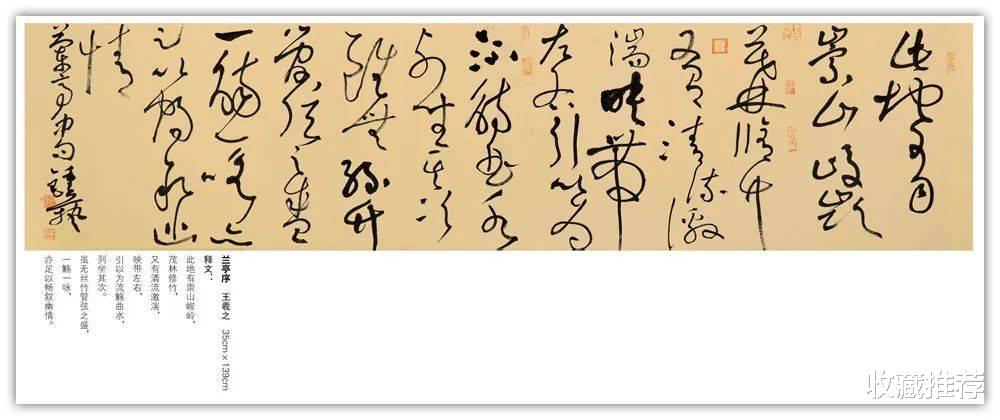 此地有
崇山峻嶺
茂林脩竹
又有清流激
湍映帶
左右引以為
流觴曲水
列坐其次
雖無絲竹
管弦之盛
一觴一詠亦
足以暢敘幽
情
兰亭序 王羲之 35cm×139cm
释文：
此地有崇山峻岭，
茂林修竹，
又有清流激湍，
映带左右，
引以为流觞曲水，
列坐其次。
虽无丝竹管弦之盛，
一觞一咏，
亦足以畅叙幽情。
收藏推荐